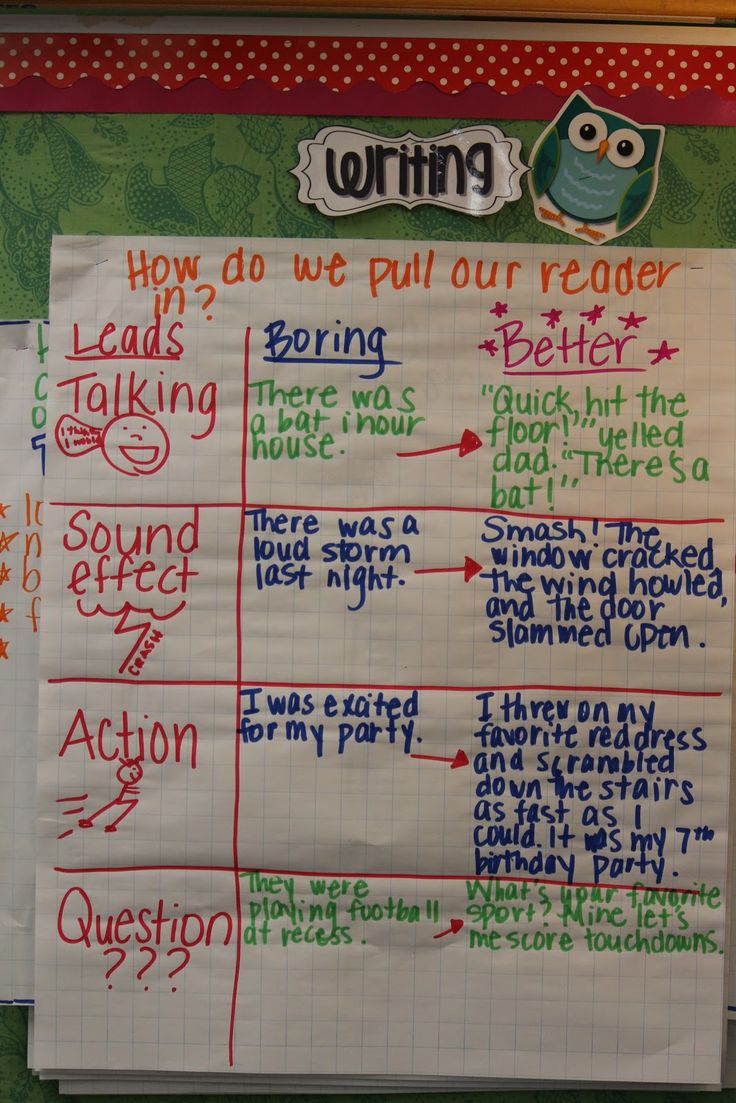 Writing
How do we pull our reader
in?
Leads
Boring
Better
Talking
There was
a bat in our
house.
"Quick, hit the
floor!" yelled
dad. "There's a
bat!"
Sound
effect
CRASH
There was a
loud storm
last night.
Smash! The
window cracked,
the wind howled,
and the door
slammed open.
Action
I was excited
for my party.
I threw on my
favorite red dress
and scrambled
down the stairs
as fast as I
could. It was my 7th
birthday party.
Question
???
They were
playing football
at recess.
What's your favorite
sport? Mine let's
me score touchdowns.